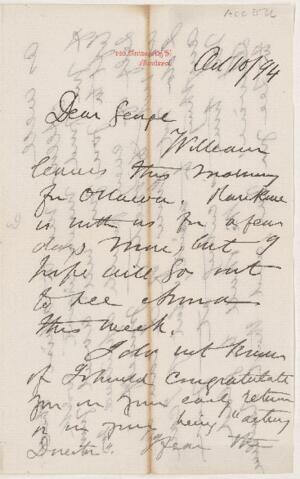 Oct 10/94
Dear George
William
leaves this morning
for Ottawa.
is with us for a few
days more, but I
hope will go out
to see
this week.
I do not know
if I should congratulate
you on your early return
or on your being "acting
Director".